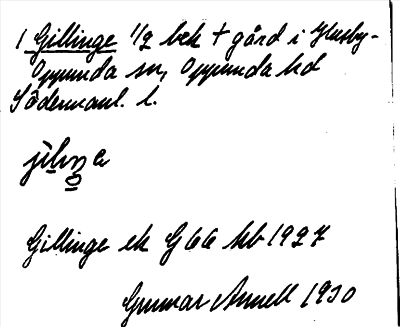 1 Gillinge 1/2 bek + gård i Husby-
Oppunda sn, Oppunda hd
Södermanl. l.
Gillinge ek G 66 hb 1927
Gunnar Annell 1930